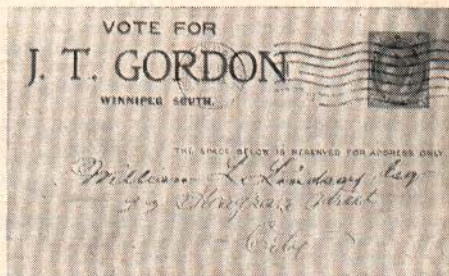 VOTE FOR
J. T. GORDON
WINNIPEG SOUTH.
THE SPACE BELOW IS RESERVED FOR ADDRESS ONLY
William L. Lindsay, Esq
Street
City